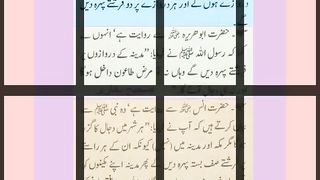 دروازے ہوں گے اور ہر دروازے پر دو فرشتے پہرہ دیں
گے
حضرت ابوہریرہ ﷜ سے روایت ہے انہوں نے
کہ رسول اللہ ﷺ نے فرمایا: "مدینہ کے دروازوں پر
فرشتے پہرہ دیں گے وہاں نہ مرض طاعون داخل ہو گا
حضرت انس ﷜ سے روایت ہے، وہ نبی ﷺ سے
بیان کرتے ہیں کہ آپ نے فرمایا: "ہر شہر میں دجال کا گزر
ہو گا مگر مکہ اور مدینہ میں (نہیں) کیونکہ ان کے ہر راستے
پر فرشتے صف بستہ پہرہ دیں گے پھر مدینہ اپنے مکینوں کو